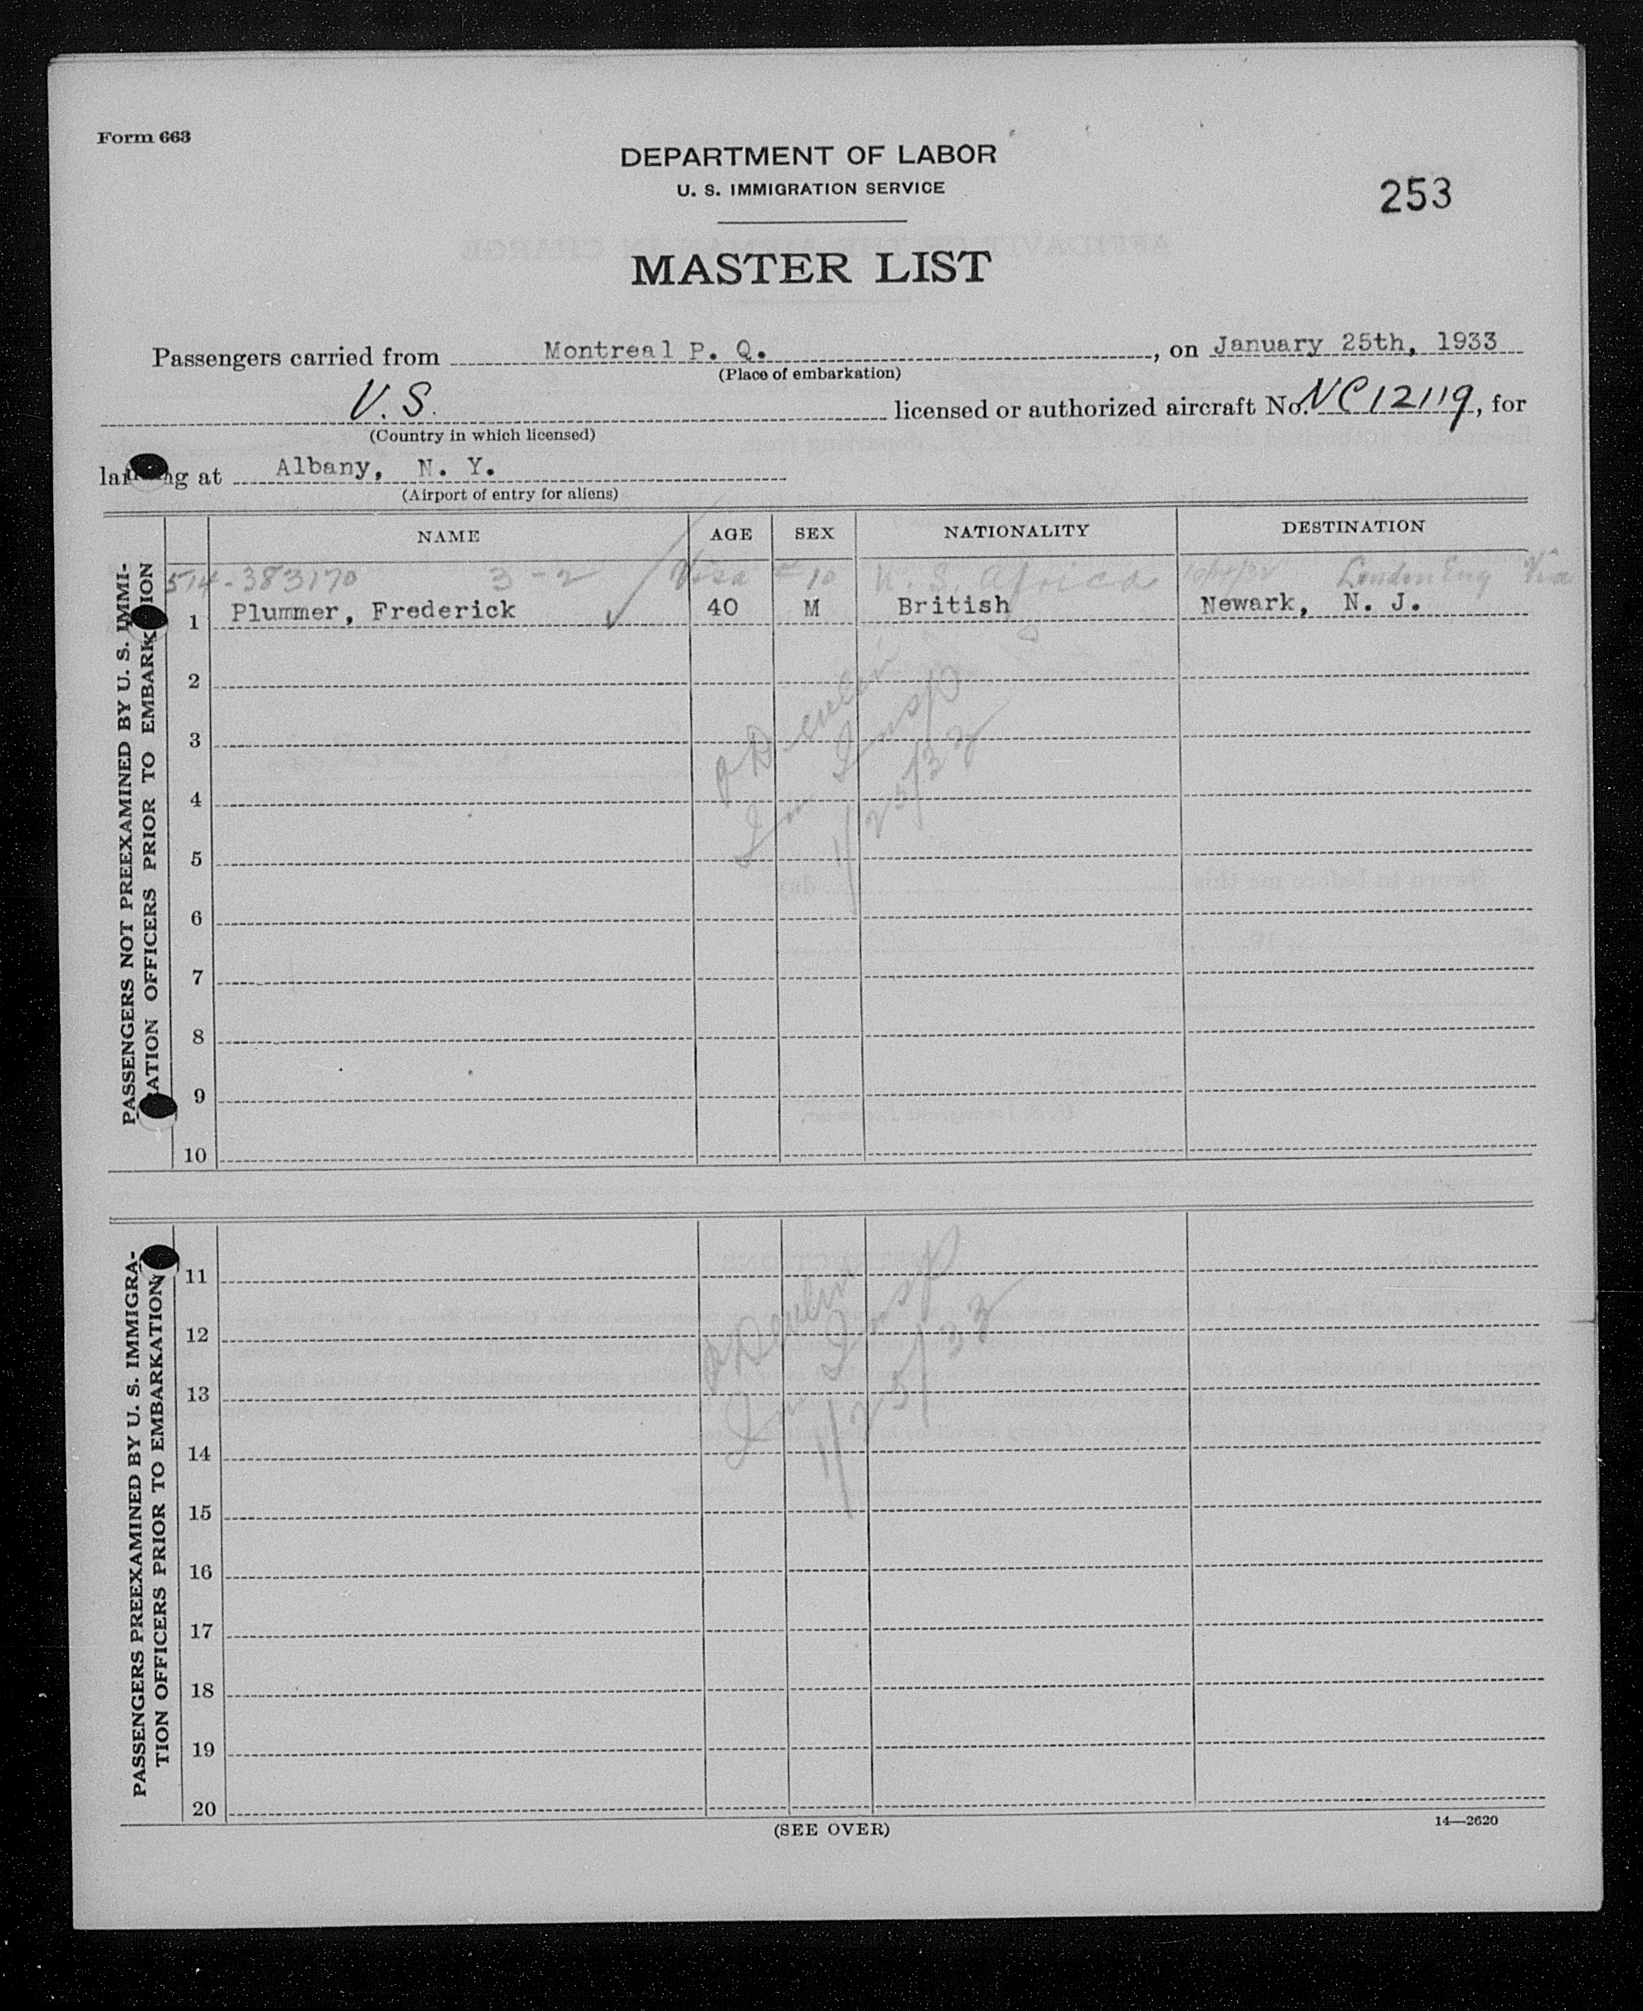 Form 663
DEPARTMENT OF LABOR
U. S. IMMIGRATION SERVICE
253
MASTER LIST
Passengers carried from Montreal P. Q. , on January 25th, 1933
(Place of embarkation)
U. S. licensed or authorized aircraft No. NC12119, for
(Country in which licensed)
landing at Albany, N. Y.
(Airport of entry for aliens)
NAME AGE SEX NATIONALITY DESTINATION
PASSENGERS NOT PREEXAMINED BY U. S. IMMI-
GRATION OFFICERS PRIOR TO EMBARKATION
514-383170 3-2 Visa # 10 S. Africa London Eng Via
1 Plummer, Frederick 40 M British Newark, N. J.
2
3
4
5
6
7
8
9
10
Im Insp
1/25/33
PASSENGERS PREEXAMINED BY U. S. IMMIGRA-
TION OFFICERS PRIOR TO EMBARKATION
11
12
13
14
15
16
17
18
19
20
Im Insp
1/25/33
(SEE OVER)
14—2620